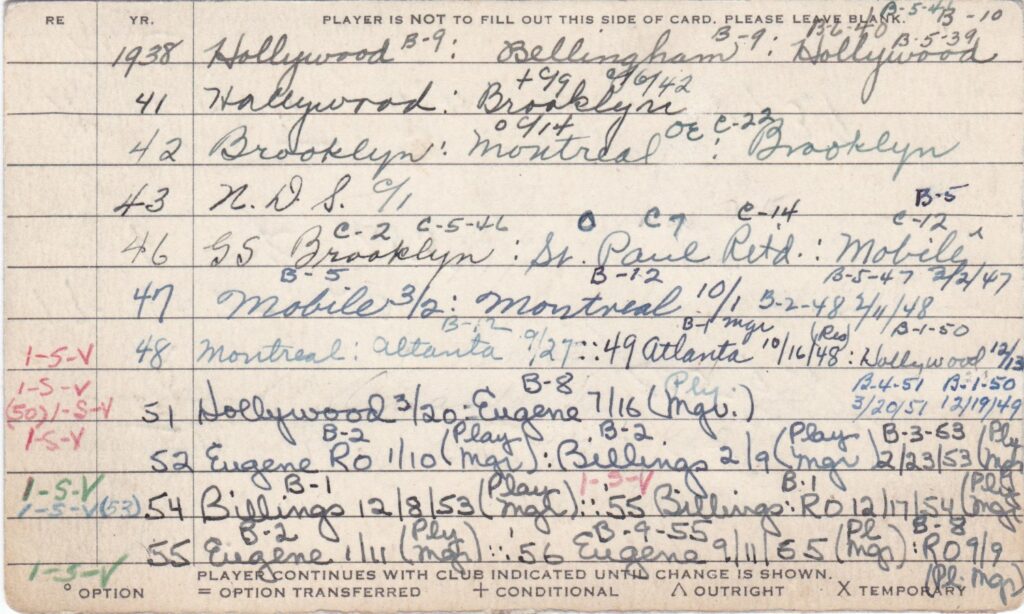 RE YR. PLAYER IS NOT TO FILL OUT THIS SIDE OF CARD. PLEASE LEAVE BLANK.
B-6-40 B-5-41 B-10
B-9 B-9 B-5-39
1938 Hollywood : Bellingham : Hollywood
+ C/9 C/6/42
41 Hollywood : Brooklyn
O C/14 OE C-22
42 Brooklyn : Montreal : Brooklyn
43 N.D.S. C/1 B-5
C-2 C-5-46 O C7 C-14 C-12
46 GS Brooklyn : St. Paul Retd. : Mobile
B-5 B-12 B-5-47 3/2/47
47 Mobile 3/2 : Montreal 10/1 B-2-48 2/11/48
B-12 B-1 Mgr (Res) B-1-50
1-S-V 48 Montreal : Altanta 9/27 :: 49 Atlanta 10/16/48 : Hollywood 12/13
1-S-V B-8 Ply. B-4-51 B-1-50
(50) 1-S-V 51 Hollywood 3/20 : Eugene 7/16 (Mgr.) 3/20/51 12/19/49
1-S-V B-2 (Play B-2 (Play B-3-53 (Ply
52 Eugene RO 1/10 Mgr) : Billings 2/9 Mgr) 2/23/53 Mgr)
1-S-V B-1 (Play 1-S-V B-1 (Ply
1-S-V (53) 54 Billings 12/8/53 Mgr) :: '55 Billings : RO 12/17/54 Mgr)
B-2 (Ply B-9-55 (Pl B-8
55 Eugene 1/11 Mgr) :: '56 Eugene 9/11/55 Mgr) : RO 9/9
1-S-V PLAYER CONTINUES WITH CLUB INDICATED UNTIL CHANGE IS SHOWN. (Pl. Mgr)
° OPTION = OPTION TRANSFERRED + CONDITIONAL △ OUTRIGHT X TEMPORARY